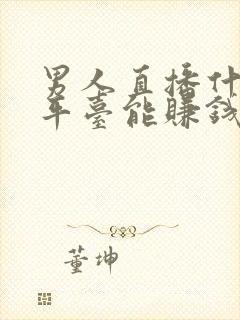 男人直播什
平臺能賺錢
董坤